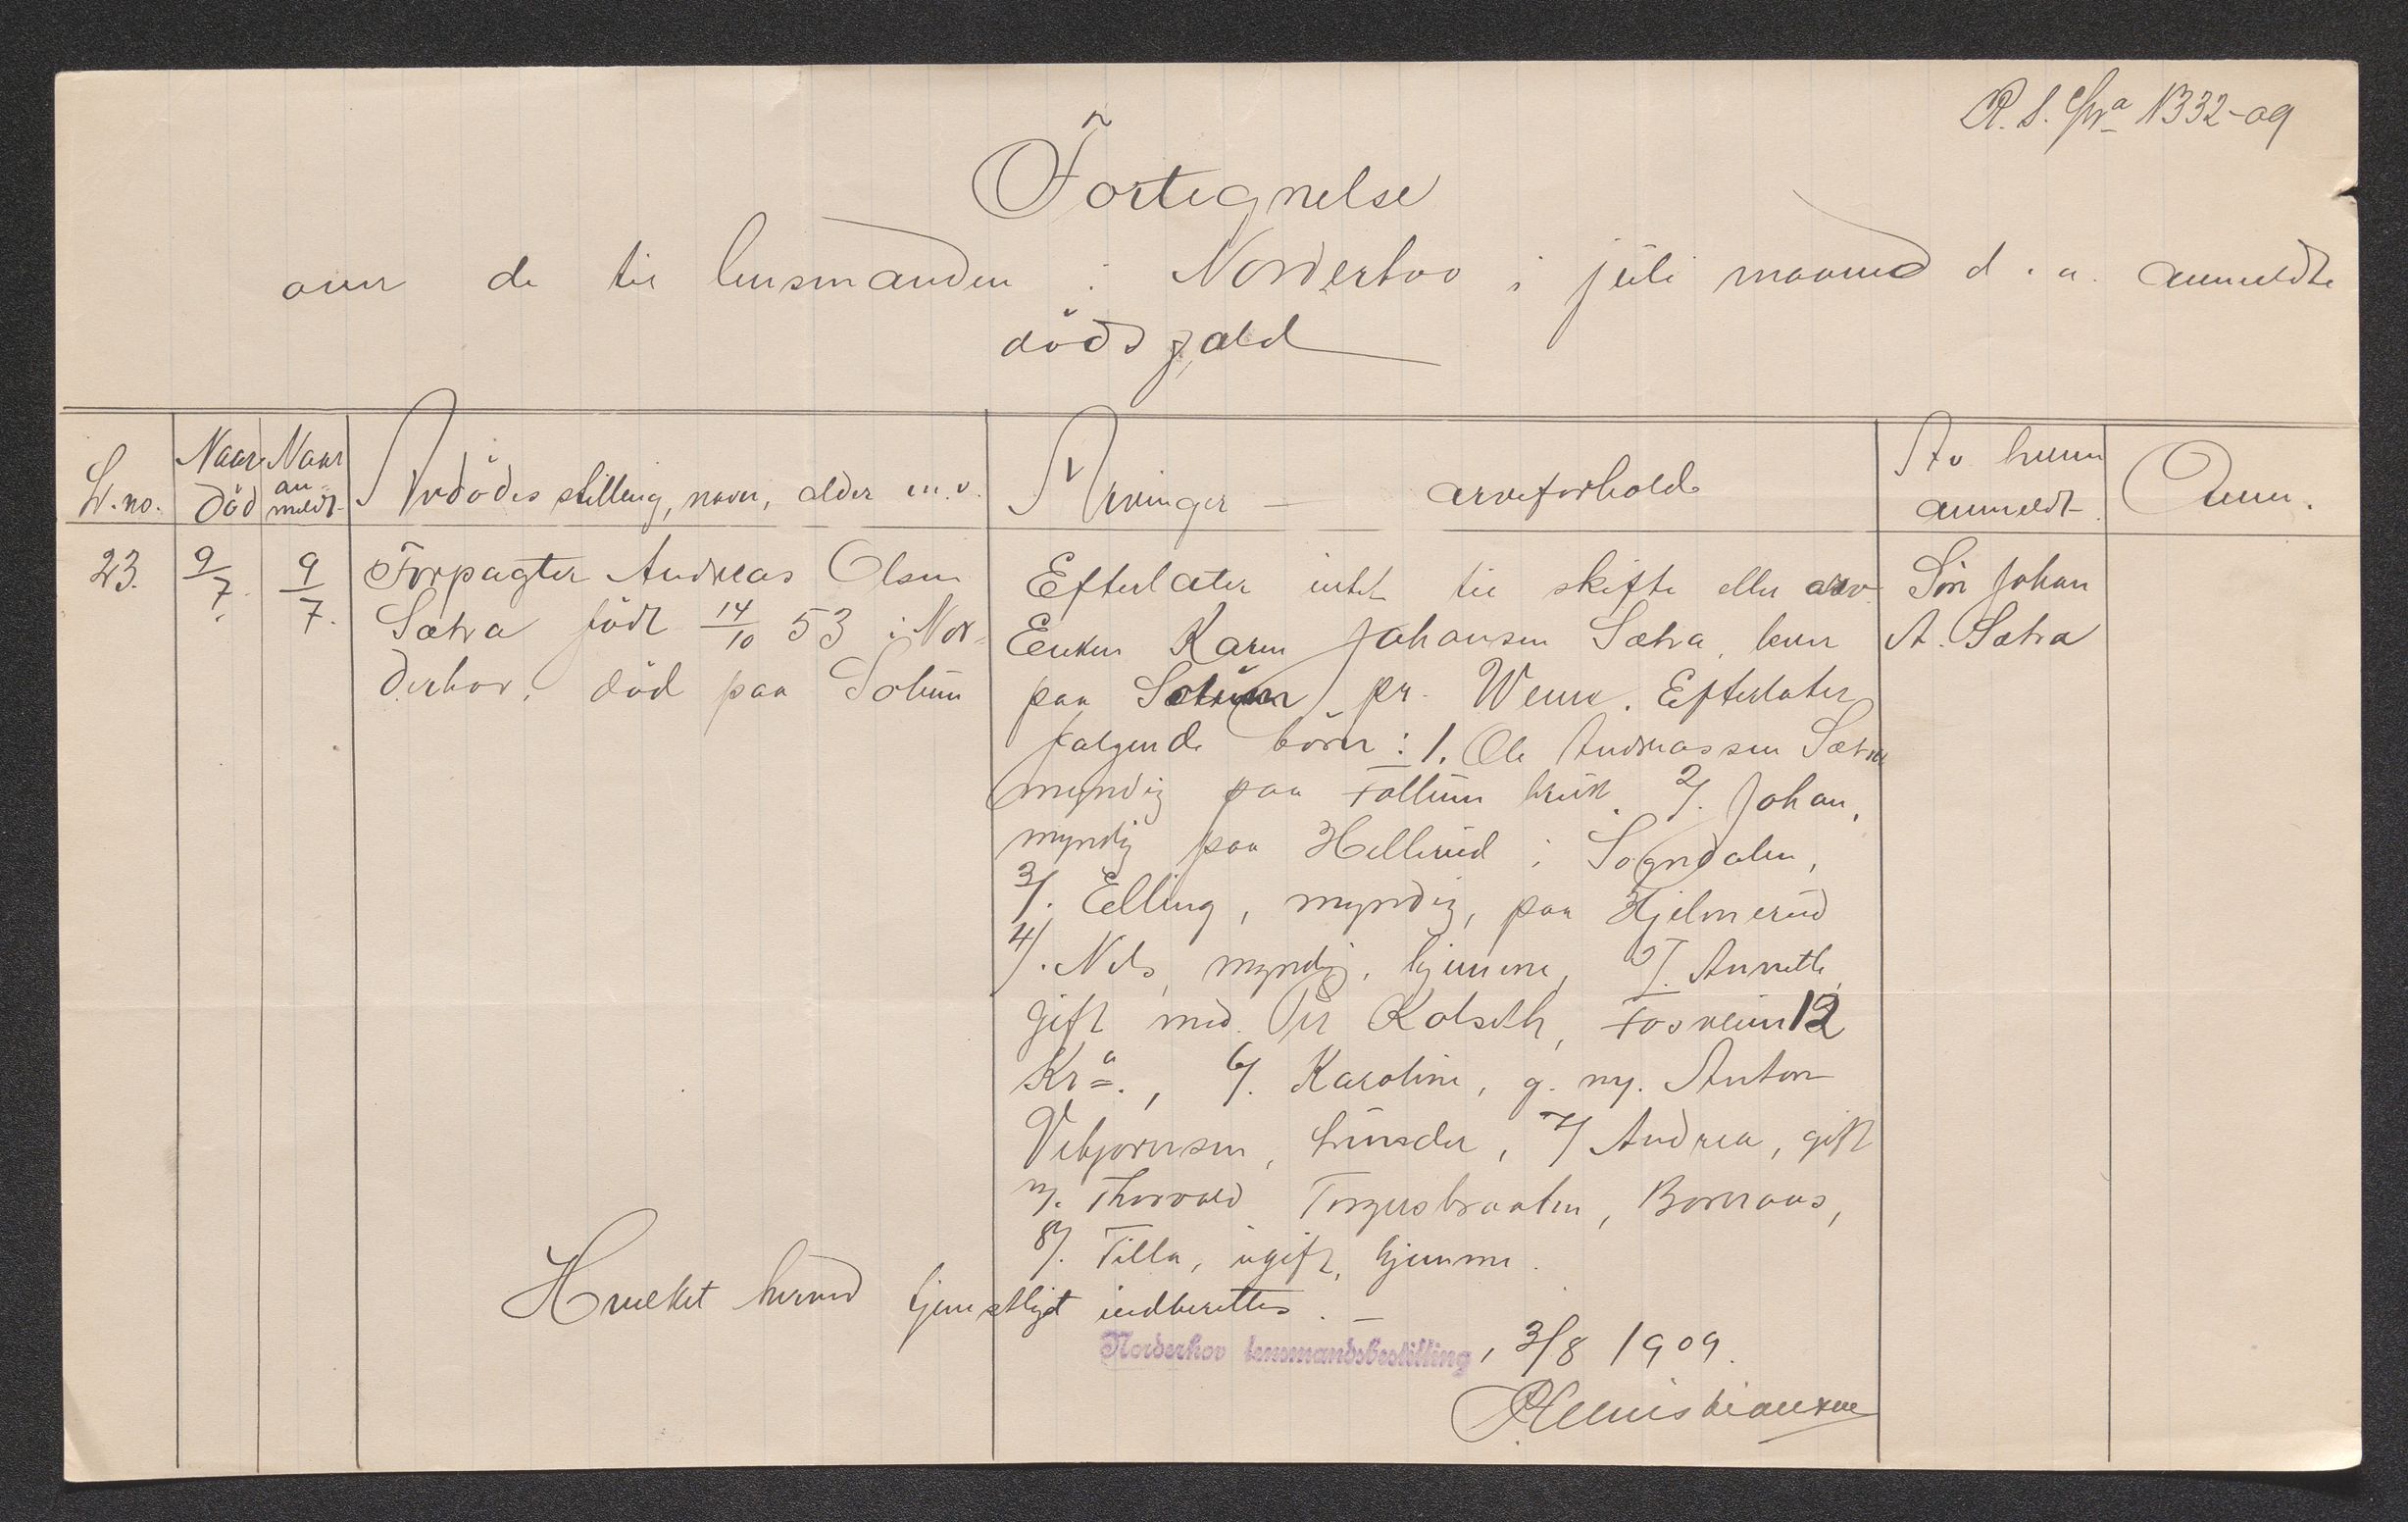 R. S. 1332-09
Fortegnelse
over de til lensmanden i Norderhov i juli maaned d. a. anmeldte
dödsfald
L. no.
Naar död
Naar an-meldt
Avdödes stilling, navn, alder m.v.
Arvinger — arveforhold
Av hvem anmeldt.
Anm.
23.
9/7.
9/7.
Forpagter Andreas Olsen
Sætra födt 14/10 53 i Nor-
derhov, död paa Solum
Efterlater intet til skifte eller arv
Enken Karen Johansen Sætra, lever
paa Solum pr. Weme. Efterlater
følgende börn: 1. Ole Andreassen Sætra
myndig paa Follum bruk. 2/. Johan,
myndig paa Hellerud i Sogndalen,
3/. Elling, myndig, paa Hjelmerud
4/. Nils, myndig, hjemme, 5/. Annette,
gift med Per Kolseth, Fosveien 12
Kra., 6/. Karoline, g. m. Anton
Vebjørnsen, 7/ Andrea, gift
m. Thorvald Torgersbraaten,
8/. Tilla, ugift, hjemme.
Sön Johan
A. Sætra
Hvilket herved tjenstligst indberettes. —
Norderhov lensmandsbestilling, 3/8 1909.